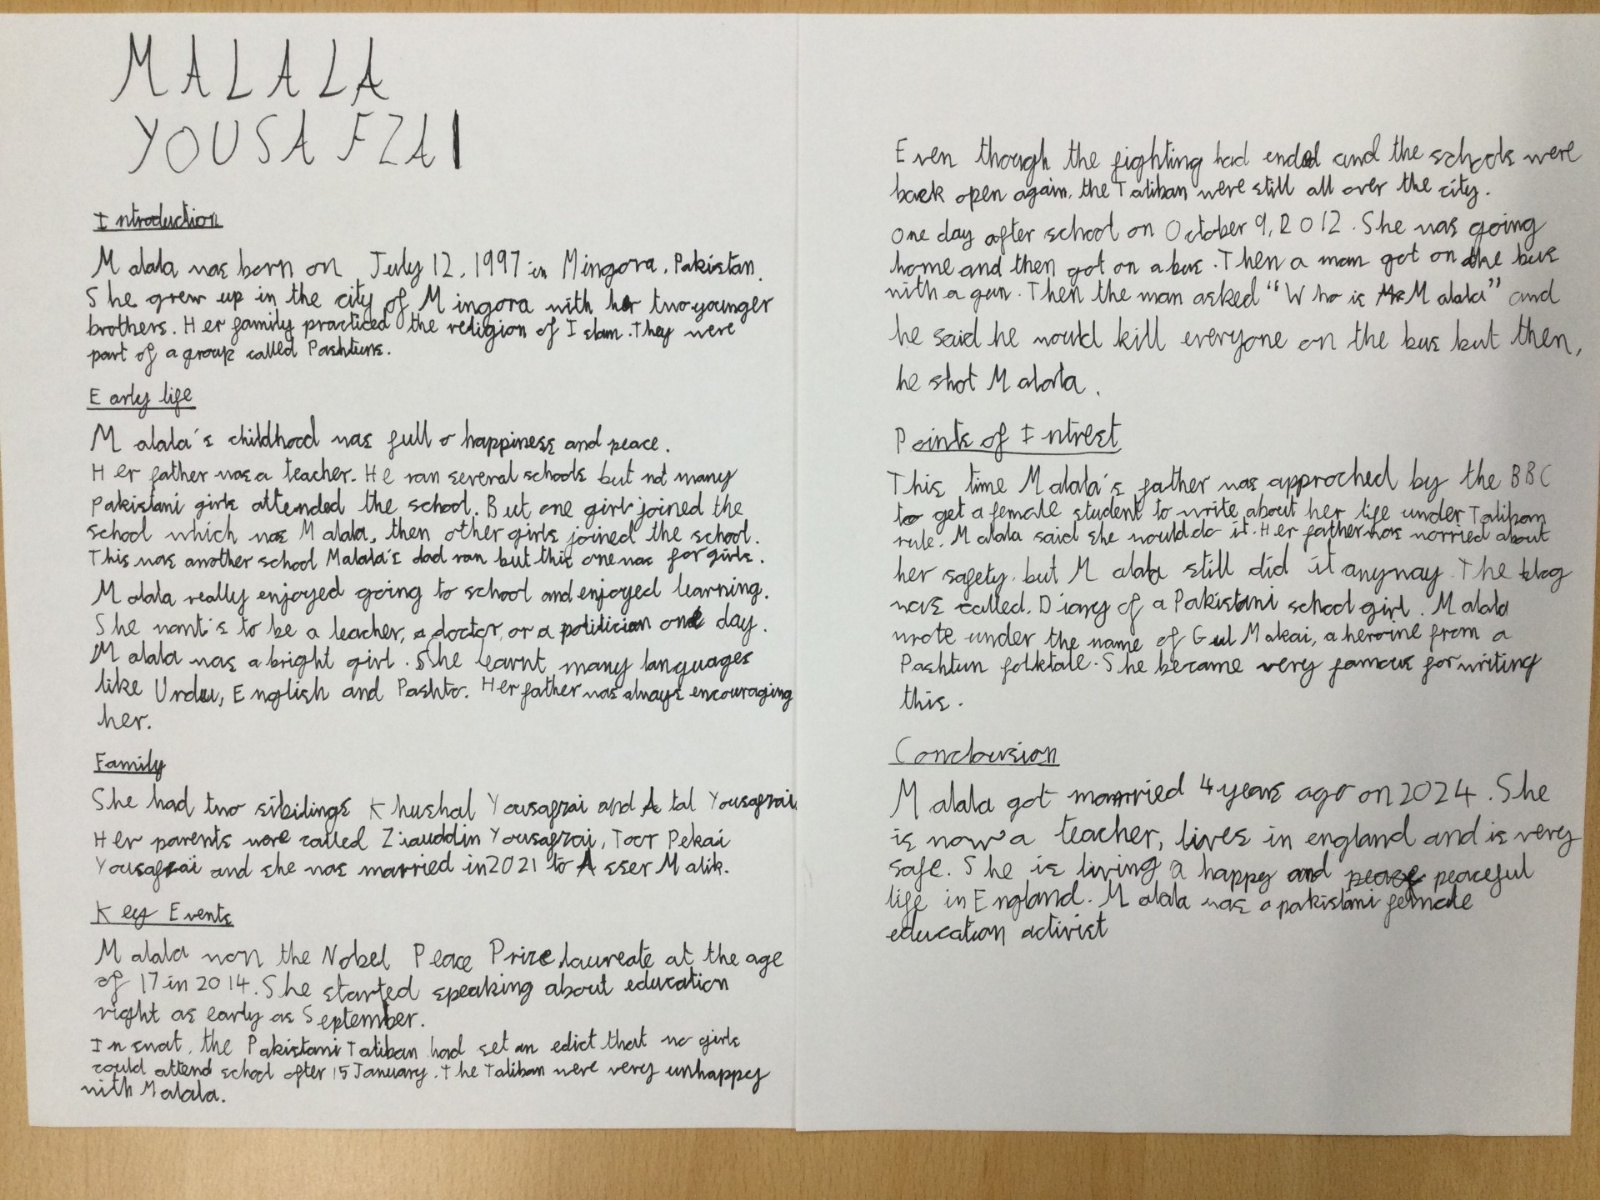 MALALA
YOUSAFZAI
Introduction
Malala was born on July 12, 1997 in Mingora, Pakistan.
She grew up in the city of Mingora with her two younger
brothers. Her family practiced the religion of Islam. They were
part of a group called Pashtuns.
Early life
Malala's childhood was full o happiness and peace.
Her father was a teacher. He ran several schools but not many
Pakistani girls attended the school. But one girl joined the
school which was Malala, then other girls joined the school.
This was another school Malala's dad ran but this one was for girls.
Malala really enjoyed going to school and enjoyed learning.
She want's to be a teacher, a doctor, or a politician one day.
Malala was a bright girl. She learnt many languages
like Urdu, English and Pashto. Her father was always encouraging
her.
Family
She had two sibilings Khushal Yousafzai and Atal Yousafzai
Her parents were called Ziauddin Yousafzai, Toor Pekai
Yousafzai and she was married in 2021 to Asser Malik.
Key Events
Malala won the Nobel Peace Prize laureate at the age
of 17 in 2014. She started speaking about education
right as early as September.
In swat, the Pakistani Taliban had set an edict that no girls
could attend school after 15 January. The Taliban were very unhappy
with Malala.
Even though the fighting had ended and the schools were
back open again, the Taliban were still all over the city.
One day after school on October 9, 2012. She was going
home and then got on a bus. Then a man got on the bus
with a gun. Then the man asked "Who is Malala" and
he said he would kill everyone on the bus but then,
he shot Malala.
Points of Intrest
This time Malala's father was approched by the BBC
to get a female student to write about her life under Taliban
rule. Malala said she would do it. Her father was worried about
her safety, but Malala still did it anyway. The blog
was called, Diary of a Pakistani school girl. Malala
wrote under the name of Gul Makai, a heroine from a
Pashtun folktale. She became very famous for writing
this.
Conclusion
Malala got married 4 years ago on 2024. She
is now a teacher, lives in england and is very
safe. She is living a happy and peaceful
life in England. Malala was a pakistani female
education activist